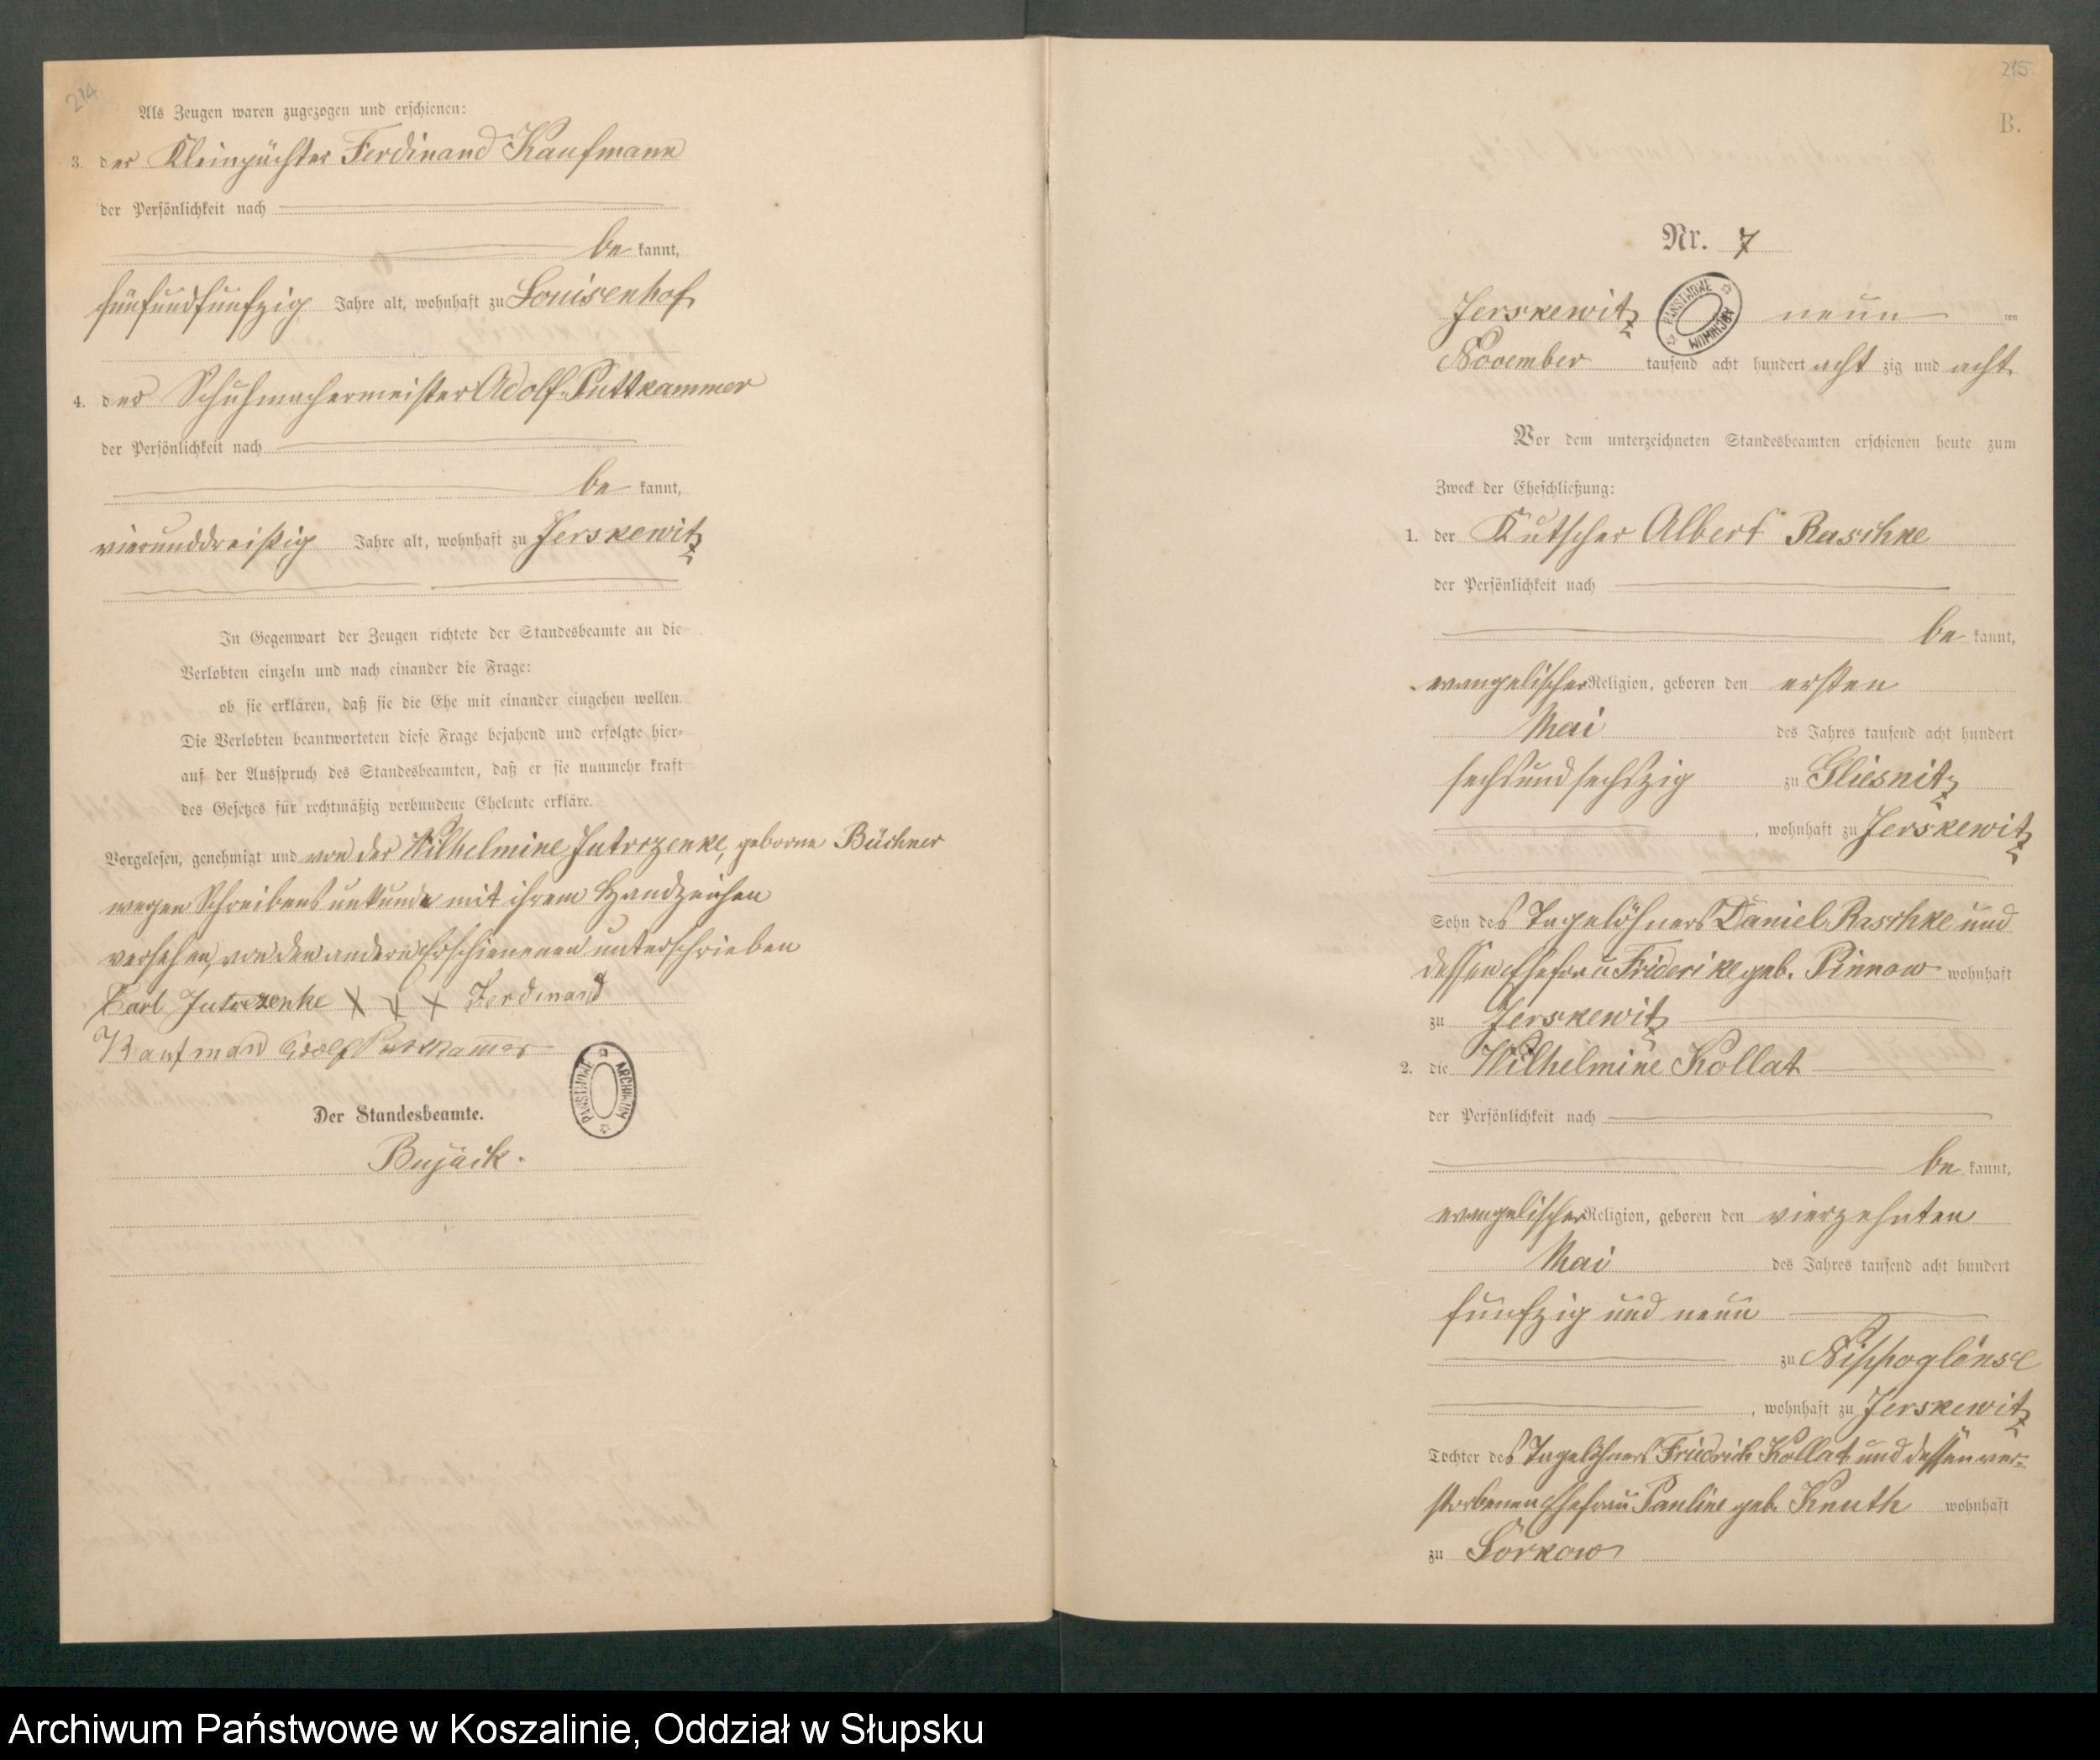 214.
Als Zeugen waren zugezogen und erschienen:
3. der Kleinpächter Ferdinand Kaufmann
der Persönlichkeit nach
be kannt,
fünfundfunfzig Jahre alt, wohnhaft zu Louisenhof
4. der Schuhmachermeister Adolf Puttkammer
der Persönlichkeit nach
be kannt,
vierunddreißig Jahre alt, wohnhaft zu Jerskewitz
In Gegenwart der Zeugen richtete der Standesbeamte an die
Verlobten einzeln und nach einander die Frage:
ob sie erklären, daß sie die Ehe mit einander eingehen wollen.
Die Verlobten beantworteten diese Frage bejahend und erfolgte hier-
auf der Ausspruch des Standesbeamten, daß er sie nunmehr kraft
des Gesetzes für rechtmäßig verbundene Eheleute erkläre.
Vorgelesen, genehmigt und von der Wilhelmine Jutrzenke, geborne Büchner
wegen Schreibensunkunde mit ihrem Handzeichen
versehen, von den andern Erschienenen unterschrieben
Carl Jutrzenke X X X Ferdinand
Kaufman Adolf Puttkammer
PAŃSTWOWE ARCHIWUM
Der Standesbeamte.
Bujack.
215
B.
Nr. 7
Jerskewitz neun ten
PAŃSTWOWE ARCHIWUM
November tausend acht hundert acht zig und acht
Vor dem unterzeichneten Standesbeamten erschienen heute zum
Zweck der Eheschließung:
1. der Kutscher Albert Raschke
der Persönlichkeit nach
be kannt,
evangelischer Religion, geboren den ersten
Mai des Jahres tausend acht hundert
sechsundsechszig zu Gliesnitz
, wohnhaft zu Jerskewitz
Sohn des Tagelöhners Daniel Raschke und
dessen Ehefrau Friderike geb. Pinnow wohnhaft
zu Jerskewitz
2. die Wilhelmine Kollat
der Persönlichkeit nach
be kannt,
evangelischer Religion, geboren den vierzehnten
Mai des Jahres tausend acht hundert
funfzig und neun
zu Nippoglense
, wohnhaft zu Jerskewitz
Tochter des Tagelöhners Friedrich Kollat und dessen ver-
storbenen Ehefrau Pauline geb. Knuth wohnhaft
zu Sorkow
Archiwum Państwowe w Koszalinie, Oddział w Słupsku